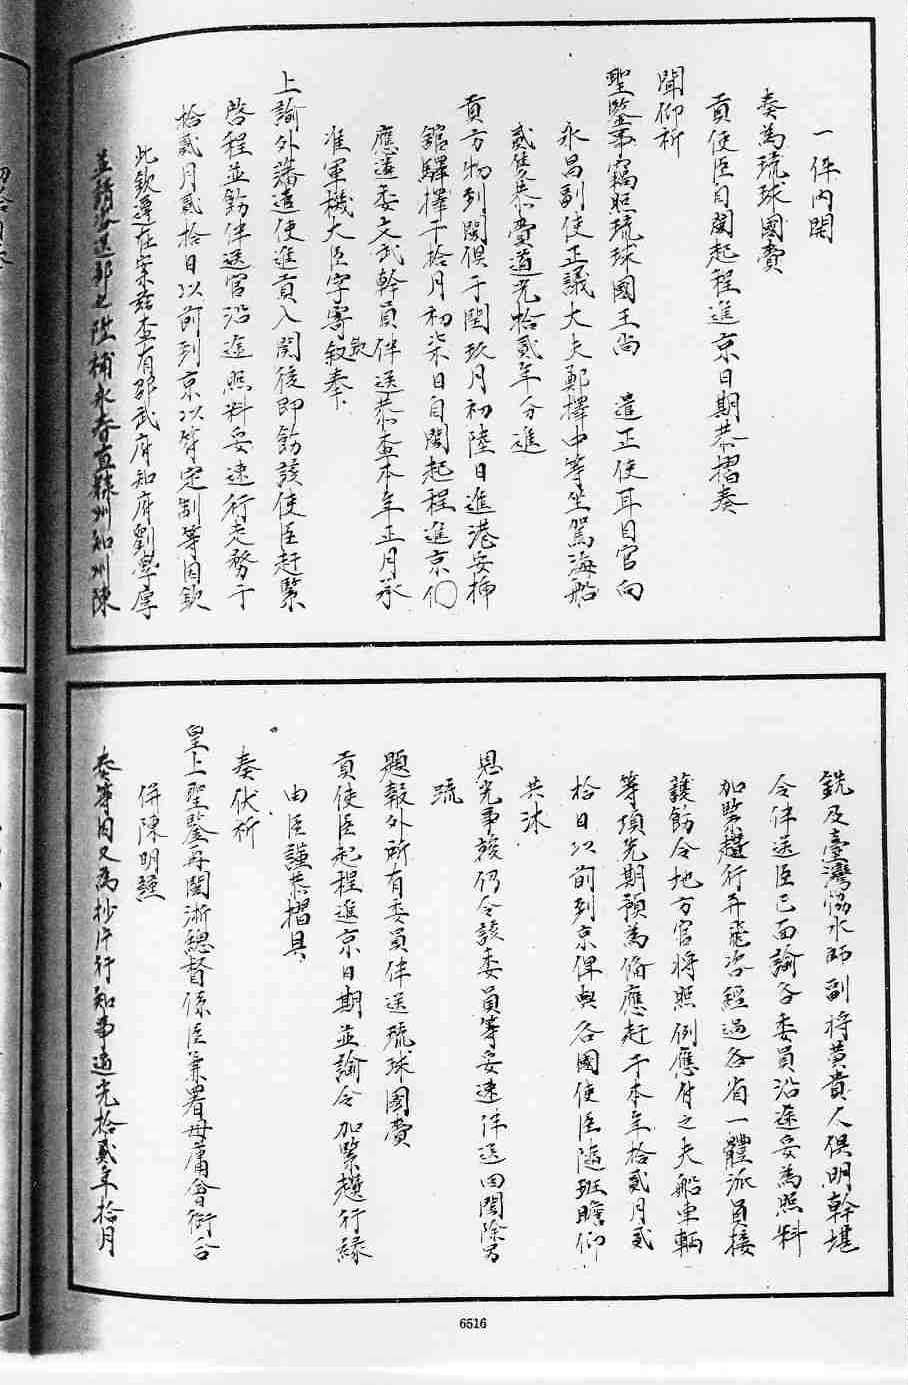 一件內開
奏為琉球國賫
貢使臣自閩起程進京日期恭摺奏
聞仰祈
聖鑒事竊照琉球國王尚　遣正使耳目官向
永昌副使正議大夫鄭擇中等坐駕海船
貳隻恭賫道光拾貳年分進
貢方物到閩俱于閏玖月初陸日進港安揷
館驛擇于拾月初柒日自閩起程進京
應遴委文武幹員伴送恭查本年正月承
准軍機大臣字寄欽奉
上諭外藩遣使進貢入関後即飭該使臣赶緊
啓程並飭伴送官沿途照料妥速行走務于
拾貳月貳拾日以前到京以符定制等因欽
此欽遵在案茲查有邵武府知府劉學厚
並請咨送部之陞補永春直隸州知州陳
銑及臺灣協水師副將黃貴人俱明幹堪
令伴送臣已面諭各委員沿途妥為照料
加緊趲行并飛咨經過各省一體派員接
護飭令地方官將照例應付之夫船車輛
等項先期預為俻應赶于本年拾貳月貳
拾日以前到京俾與各國使臣隨班瞻仰
共沐
恩光事竣仍令該委員等妥速伴送回閩除另
疏
題報外所有委員伴送琉球國賫
貢使臣起程進京日期並諭令加緊趲行緣
由臣謹恭摺具
奏伏祈
皇上聖鑒再閩浙總督係臣兼署毋庸會銜合
併陳明謹
奏等因又為抄片行知事道光拾貳年拾月
6516